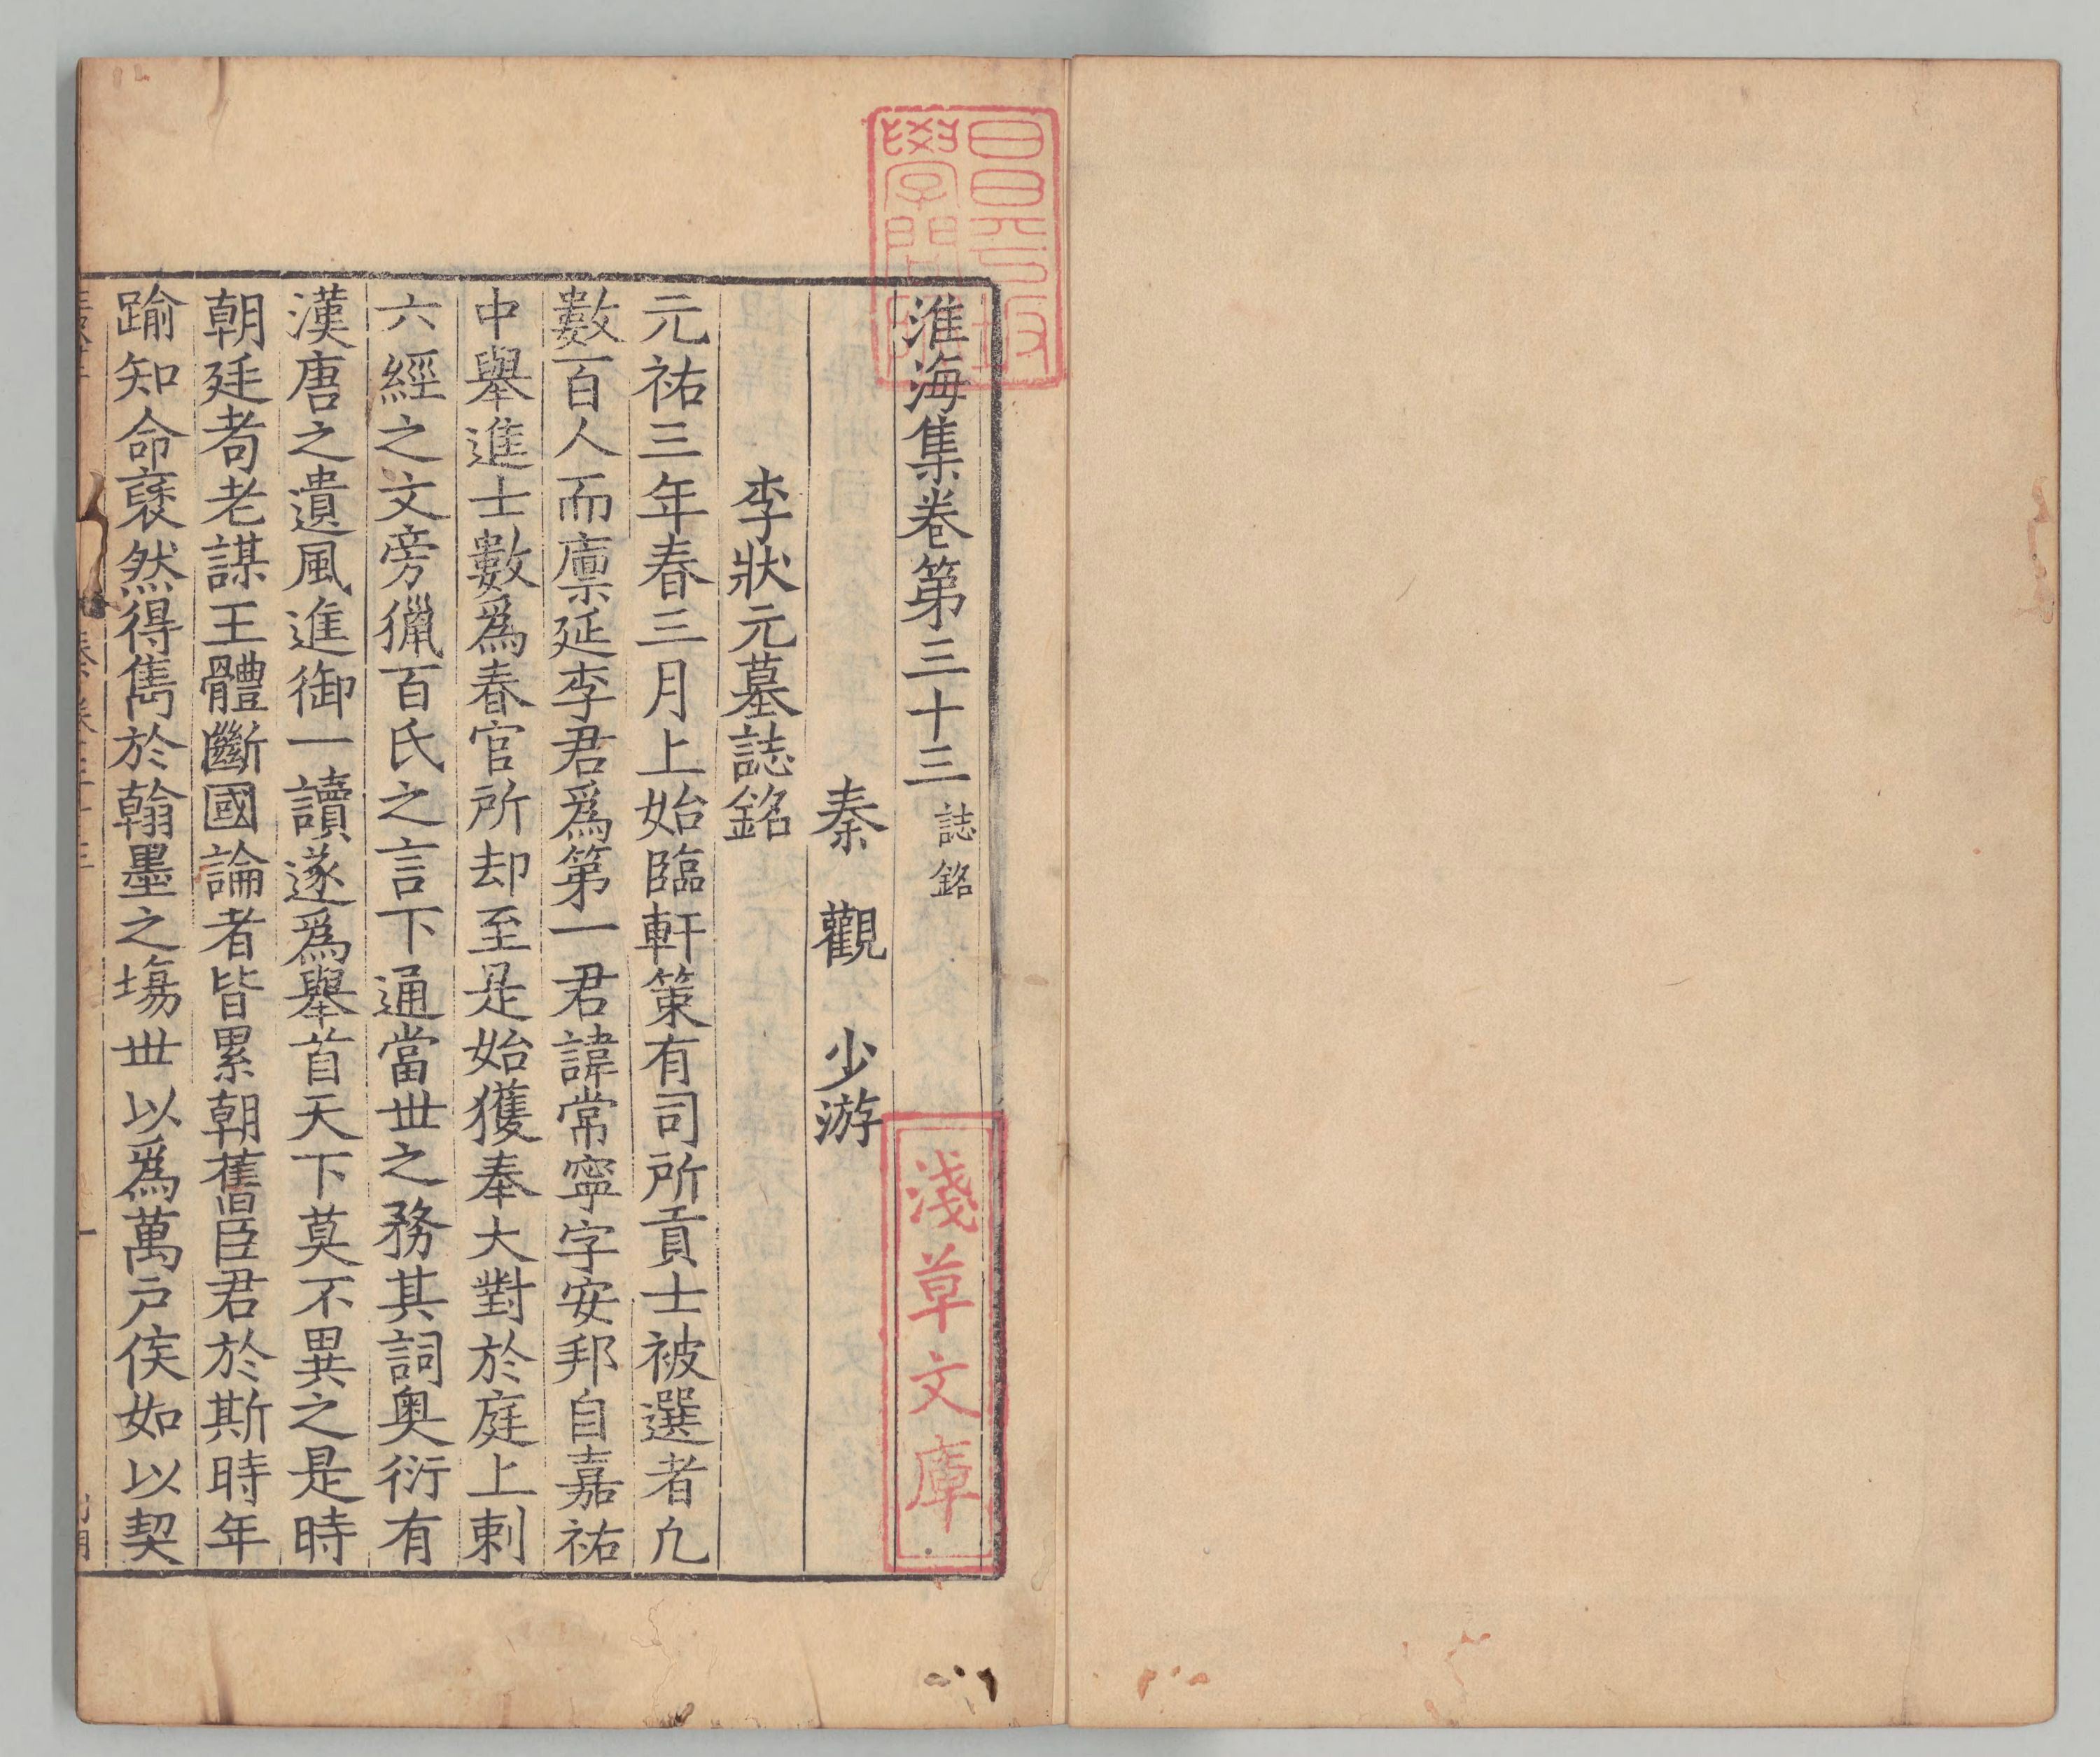 淮海集卷第三十三 誌銘
秦 觀 少游
李狀元墓誌銘
元祐三年春三月上始臨軒策有司所貢士被選者凢
數百人而廪延李君爲第一君諱常寧字安邦自嘉祐
中舉進士數爲春官所却至是始獲奉大對於庭上剌
六經之文旁獵百氏之言下通當世之務其詞奥衍有
漢唐之遺風進御一讀遂爲舉首天下莫不異之是時
朝廷耉老謀王體斷國論者皆累朝舊臣君於斯時年
踰知命襃然得雋於翰墨之塲世以爲萬户侯如以契
昌平坂
學問所
淺草文庫